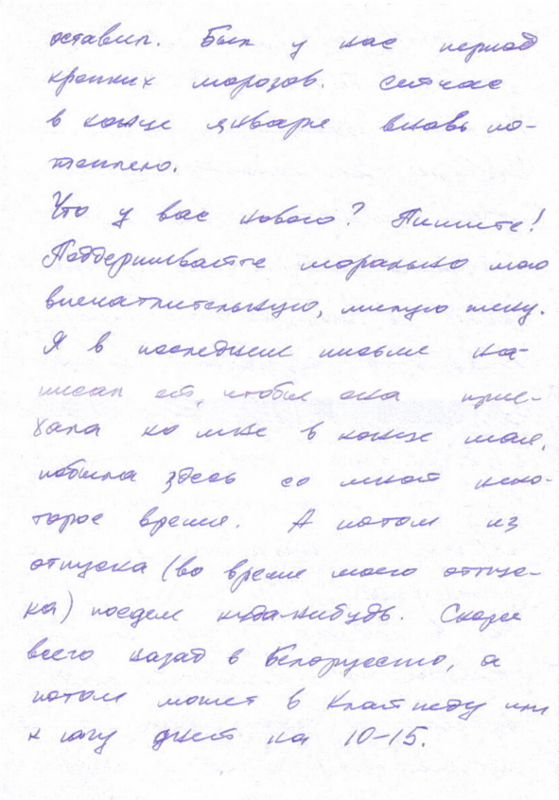 оставил. Был у нас период
крепких морозов. Сейчас
в конце января вновь по-
теплело.
Что у вас нового? Пишите!
Поддерживайте морально мою
впечатлительную, милую жену.
Я в последнем письме на-
писал ей, чтобы она прие-
хала ко мне в конце мая,
побыла здесь со мной неко-
торое время. А потом из
отпуска (во время моего отпус-
ка) поедем куда-нибудь. Скорее
всего назад в Белоруссию, а
потом может в Клайпеду или
к югу дней на 10-15.